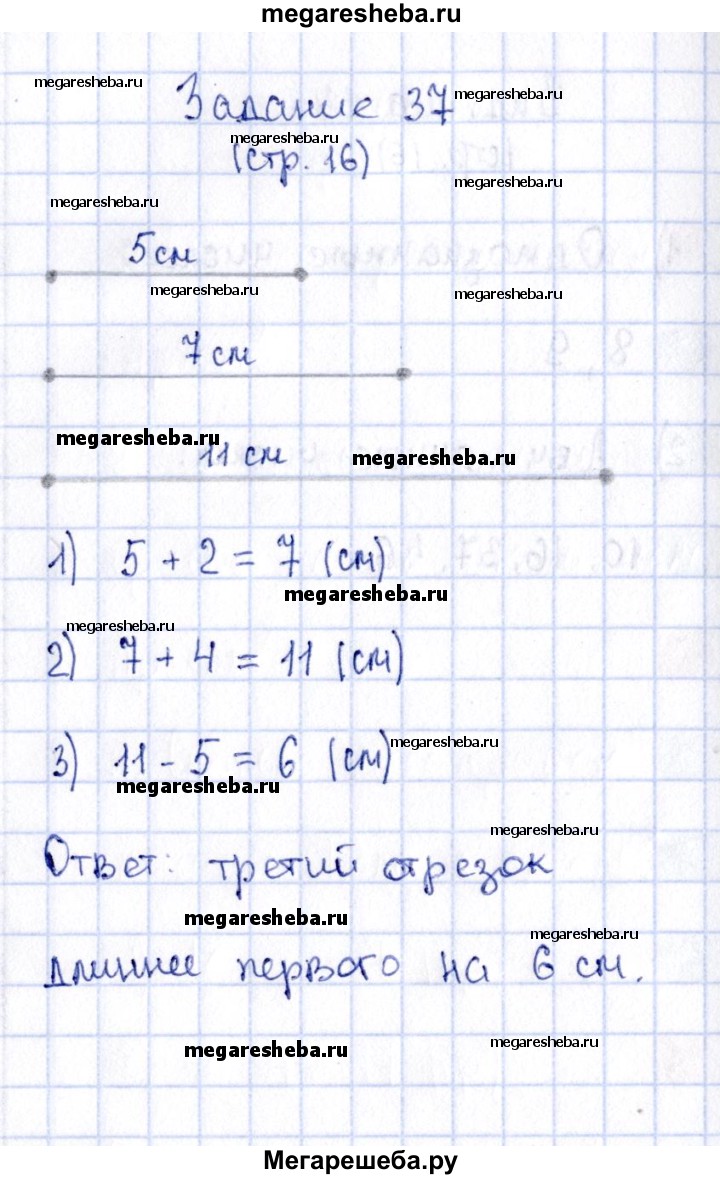 megaresheba.ru
megaresheba.ru
Задание 37
megaresheba.ru
megaresheba.ru
(стр. 16)
megaresheba.ru
megaresheba.ru
5 см
megaresheba.ru
megaresheba.ru
7 см
megaresheba.ru
11 см
megaresheba.ru
1) 5 + 2 = 7 (см)
megaresheba.ru
megaresheba.ru
2) 7 + 4 = 11 (см)
megaresheba.ru
3) 11 - 5 = 6 (см)
megaresheba.ru
megaresheba.ru
Ответ: третий отрезок
megaresheba.ru
megaresheba.ru
длиннее первого на 6 см.
megaresheba.ru
megaresheba.ru
Мегарешеба.ру